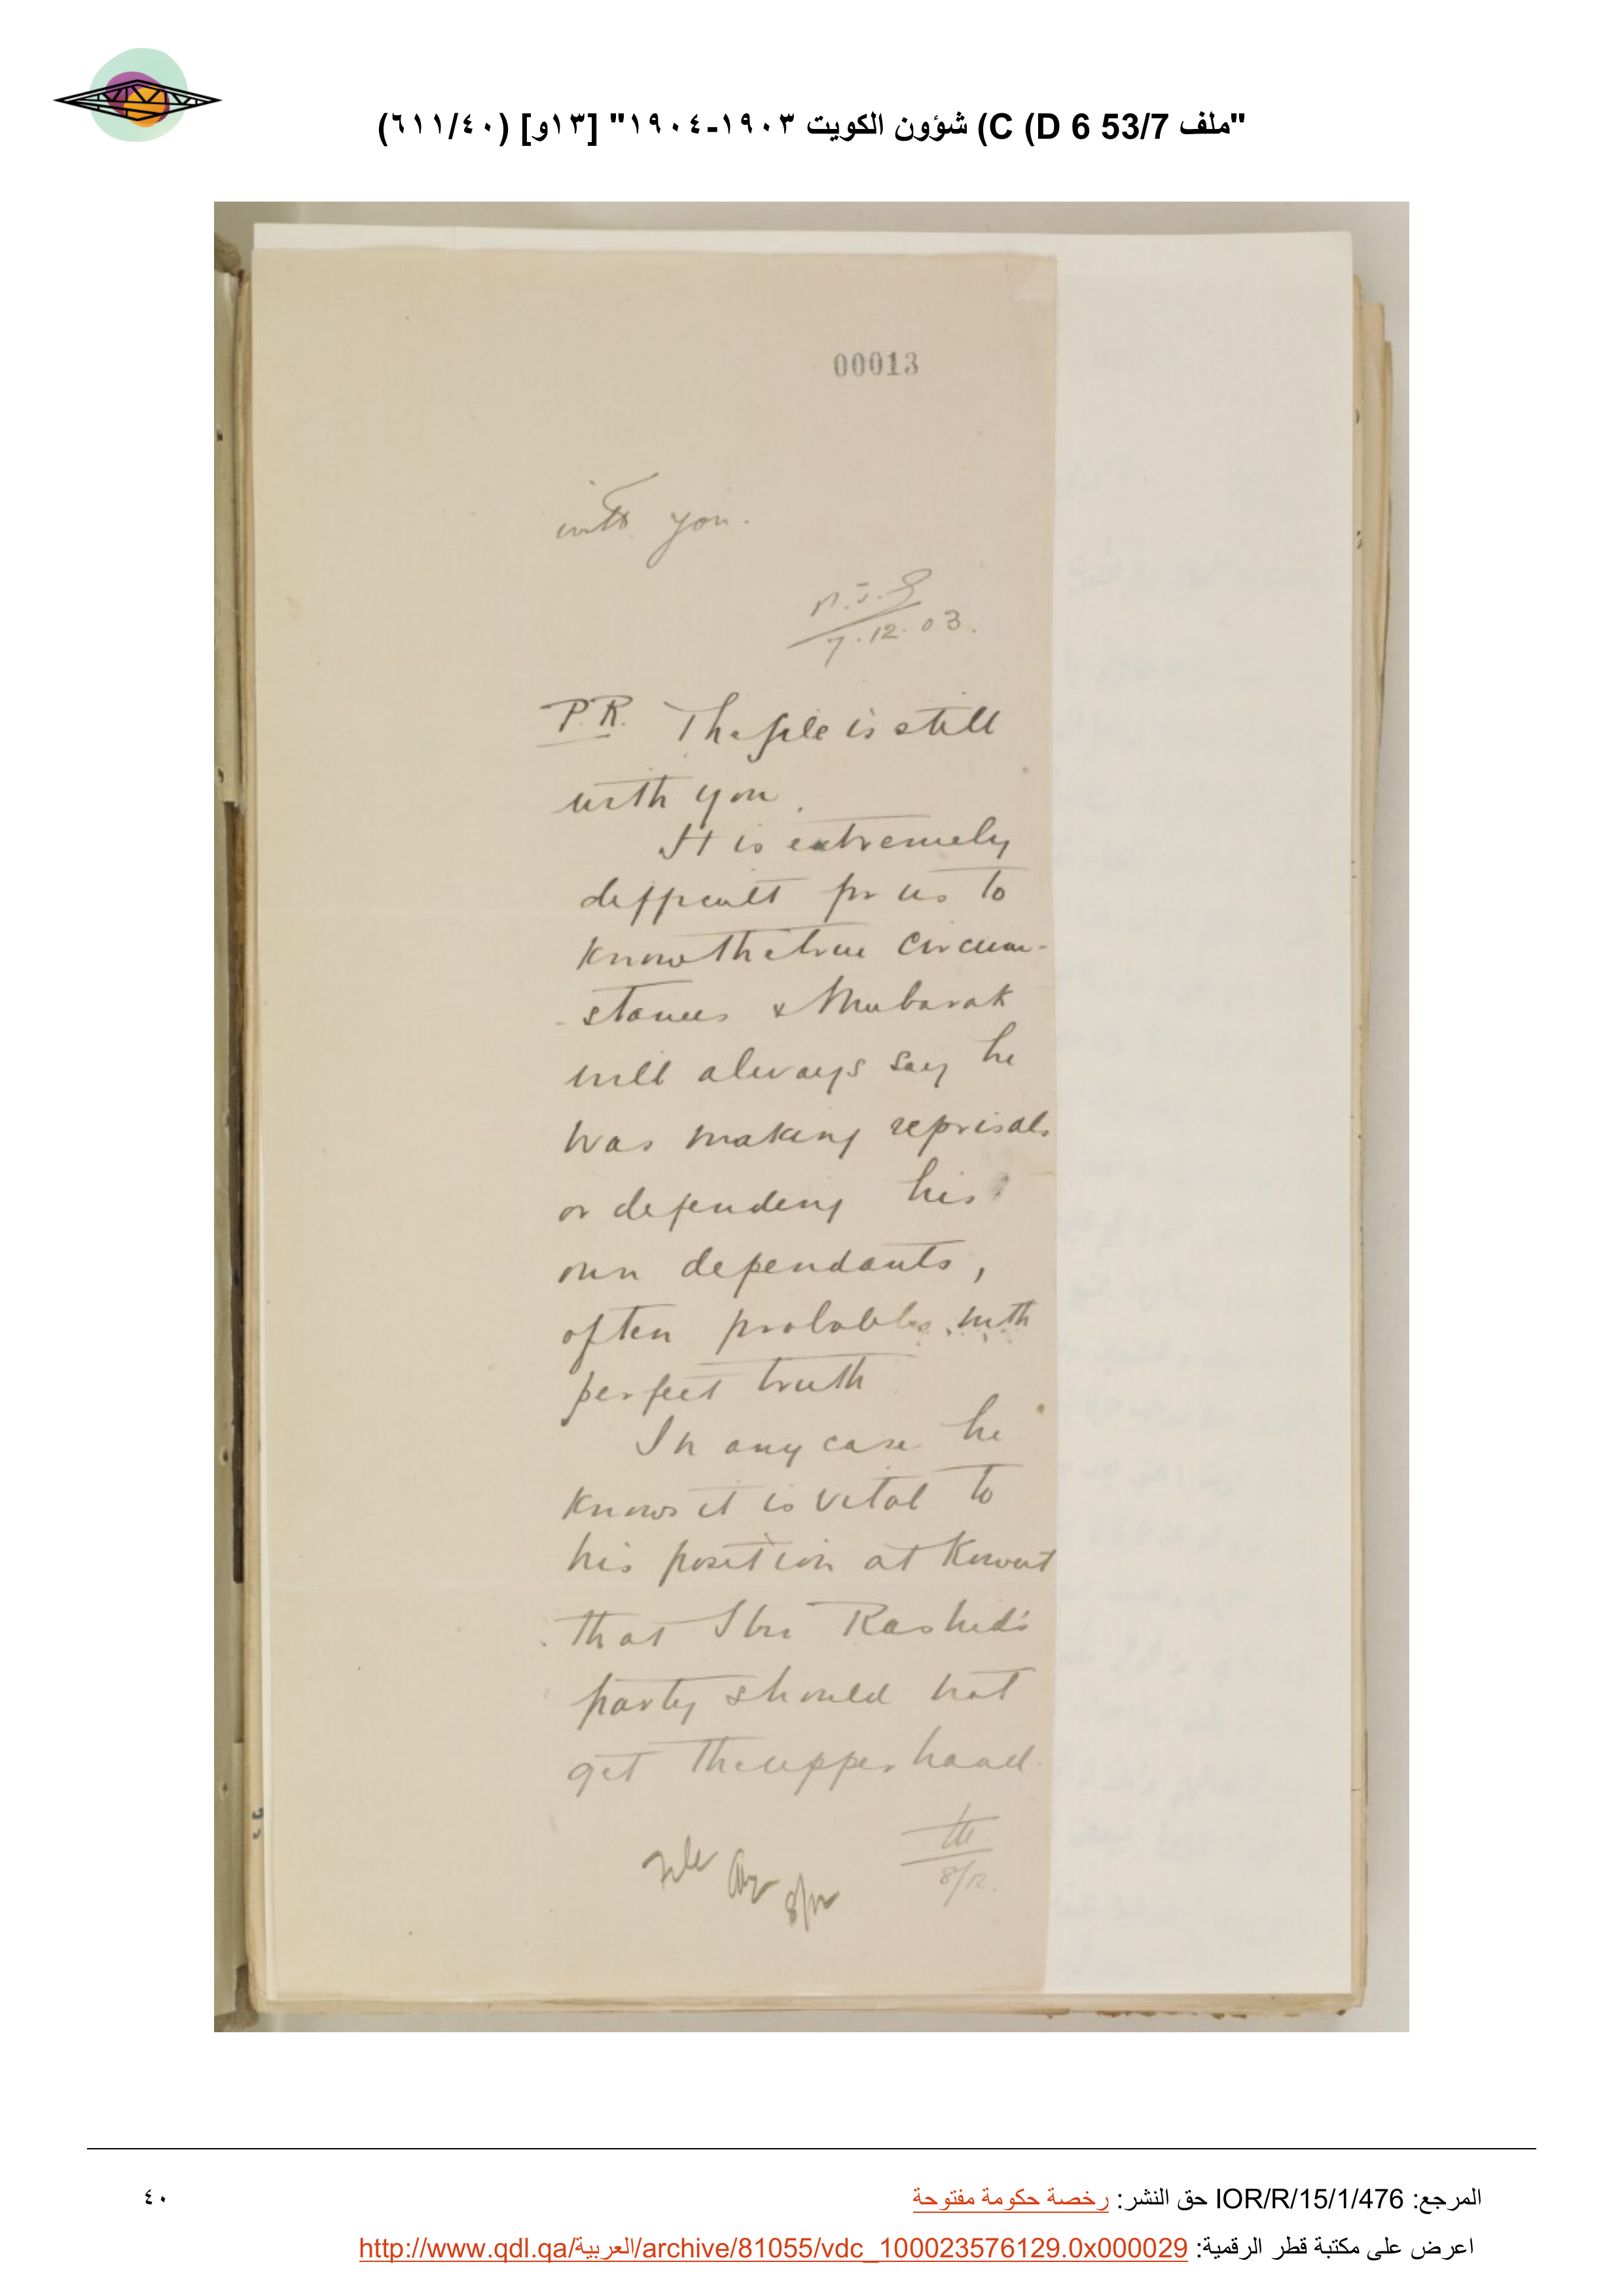 "ملف 53/7 D 6) C) شؤون الكويت ١٩٠٣-١٩٠٤" [١٣و] (٦١١/٤٠)
00013
with you.
7.12.03.
P.R. The file is still
with you.
It is extremely
difficult for us to
know the true circum-
-stances & Mubarak
will always say he
was making reprisals
or defending his
own dependants,
often probably with
perfect truth
In any case he
knows it is vital to
his position at Koweit
that Ibn Rashid's
party should not
get the upper hand.
8/12.
File
8/12
المرجع: IOR/R/15/1/476 حق النشر: رخصة حكومة مفتوحة
٤٠
اعرض على مكتبة قطر الرقمية: http://www.qdl.qa/العربية/archive/81055/vdc_100023576129.0x000029